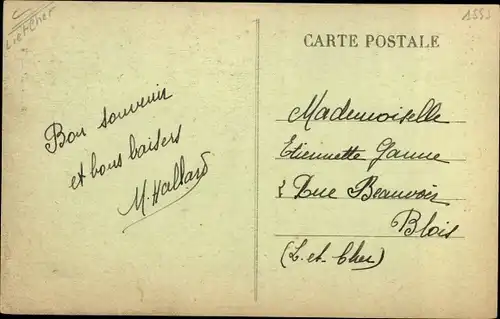 Loir et Cher
CARTE POSTALE
Bon souvenir
et bons baisers
M. Hallard
Mademoiselle
Etiennette Ganne
Rue Beauvoir
Blois
(L. et. Cher)